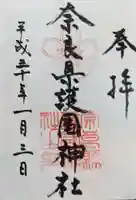 奉拝
奈良県護国神社
平成三十年一月三日